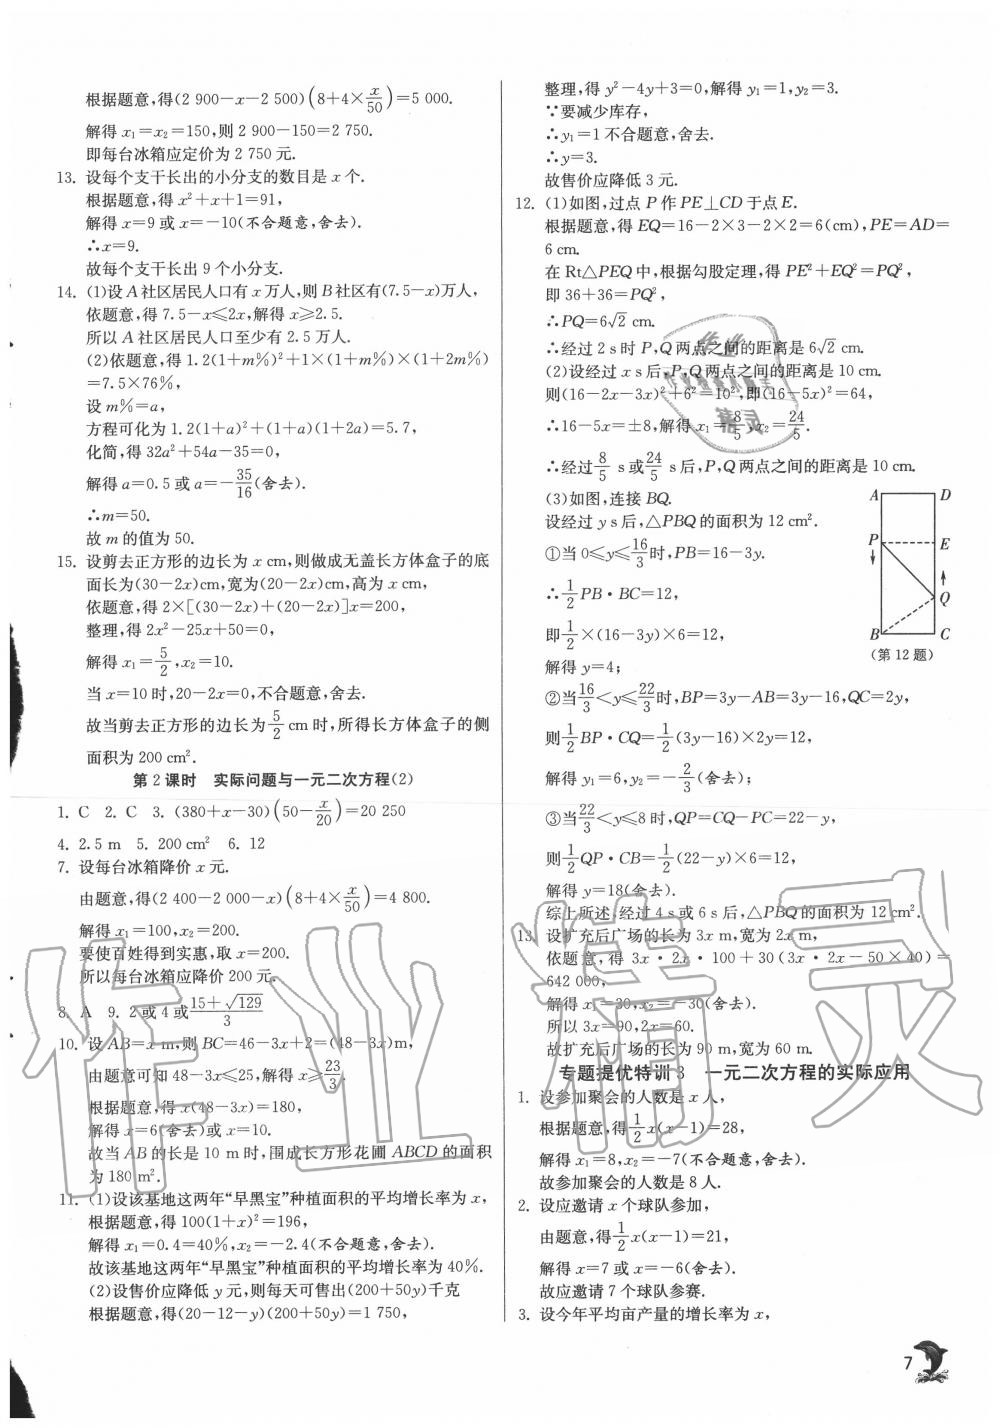 根据题意,得(2 900－x－2 500)(8+4×x/50)=5 000.
解得 x₁=x₂=150,则 2 900－150=2 750.
即每台冰箱应定价为 2 750 元.
13. 设每个支干长出的小分支的数目是 x 个.
根据题意,得 x²+x+1=91,
解得 x=9 或 x=－10(不合题意,舍去).
∴x=9.
故每个支干长出 9 个小分支.
14. (1)设 A 社区居民人口有 x 万人,则 B 社区有(7.5－x)万人,
依题意,得 7.5－x≤2x,解得 x≥2.5.
所以 A 社区居民人口至少有 2.5 万人.
(2)依题意,得 1.2(1+m%)²+1×(1+m%)×(1+2m%)
=7.5×76%,
设 m%=a,
方程可化为 1.2(1+a)²+(1+a)(1+2a)=5.7,
化简,得 32a²+54a－35=0,
解得 a=0.5 或 a=－35/16(舍去).
∴m=50.
故 m 的值为 50.
15. 设剪去正方形的边长为 x cm,则做成无盖长方体盒子的底
面长为(30－2x)cm,宽为(20－2x)cm,高为 x cm,
依题意,得 2×[(30－2x)+(20－2x)]x=200,
整理,得 2x²－25x+50=0,
解得 x₁=5/2,x₂=10.
当 x=10 时,20－2x=0,不合题意,舍去.
故当剪去正方形的边长为5/2 cm 时,所得长方体盒子的侧
面积为 200 cm².
第 2 课时 实际问题与一元二次方程(2)
1. C 2. C 3. (380+x－30)(50－x/20)=20 250
4. 2.5 m 5. 200 cm² 6. 12
7. 设每台冰箱降价 x 元.
由题意,得(2 400－2 000－x)(8+4×x/50)=4 800.
解得 x₁=100,x₂=200.
要使百姓得到实惠,取 x=200.
所以每台冰箱应降价 200 元.
8. A 9. 2 或 4 或(15+√129)/3
10. 设 AB=x m,则 BC=46－3x+2=(48－3x)m,
由题意可知 48－3x≤25,解得 x≥23/3.
根据题意,得 x(48－3x)=180,
解得 x=6(舍去)或 x=10.
故当 AB 的长是 10 m 时,围成长方形花圃 ABCD 的面积
为 180 m².
11. (1)设该基地这两年“早黑宝”种植面积的平均增长率为 x,
根据题意,得 100(1+x)²=196,
解得 x₁=0.4=40%,x₂=－2.4(不合题意,舍去).
故该基地这两年“早黑宝”种植面积的平均增长率为 40%.
(2)设售价应降低 y 元,则每天可售出(200+50y)千克
根据题意,得(20－12－y)(200+50y)=1 750,
整理,得 y²－4y+3=0,解得 y₁=1,y₂=3.
∵要减少库存,
∴y₁=1 不合题意,舍去.
∴y=3.
故售价应降低 3 元.
12. (1)如图,过点 P 作 PE⊥CD 于点 E.
根据题意,得 EQ=16－2×3－2×2=6(cm),PE=AD=
6 cm.
在 Rt△PEQ 中,根据勾股定理,得 PE²+EQ²=PQ²,
即 36+36=PQ²,
∴PQ=6√2 cm.
∴经过 2 s 时 P,Q 两点之间的距离是 6√2 cm.
(2)设经过 x s 后,P,Q 两点之间的距离是 10 cm.
则(16－2x－3x)²+6²=10²,即(16－5x)²=64,
∴16－5x=±8,解得 x₁=8/5,x₂=24/5.
∴经过8/5 s 或24/5 s 后,P,Q 两点之间的距离是 10 cm.
(3)如图,连接 BQ.
设经过 y s 后,△PBQ 的面积为 12 cm².
①当 0≤y≤16/3时,PB=16－3y.
∴1/2PB·BC=12,
即1/2×(16－3y)×6=12,
解得 y=4;
A D
P E
Q
B C
(第 12 题)
②当16/3<y≤22/3时,BP=3y－AB=3y－16,QC=2y,
则1/2BP·CQ=1/2(3y－16)×2y=12,
解得 y₁=6,y₂=－2/3(舍去);
③当22/3<y≤8 时,QP=CQ－PC=22－y,
则1/2QP·CB=1/2(22－y)×6=12,
解得 y=18(舍去).
综上所述,经过 4 s 或 6 s 后,△PBQ 的面积为 12 cm².
13. 设扩充后广场的长为 3x m,宽为 2x m,
依题意,得 3x·2x·100+30(3x·2x－50×40)=
642 000,
解得 x₁=30,x₂=－30(舍去).
所以 3x=90,2x=60.
故扩充后广场的长为 90 m,宽为 60 m.
专题提优特训 3 一元二次方程的实际应用
1. 设参加聚会的人数是 x 人,
根据题意,得1/2x(x－1)=28,
解得 x₁=8,x₂=－7(不合题意,舍去).
故参加聚会的人数是 8 人.
2. 设应邀请 x 个球队参加,
由题意,得1/2x(x－1)=21,
解得 x=7 或 x=－6(舍去).
故应邀请 7 个球队参赛.
3. 设今年平均亩产量的增长率为 x,
7
作业精灵